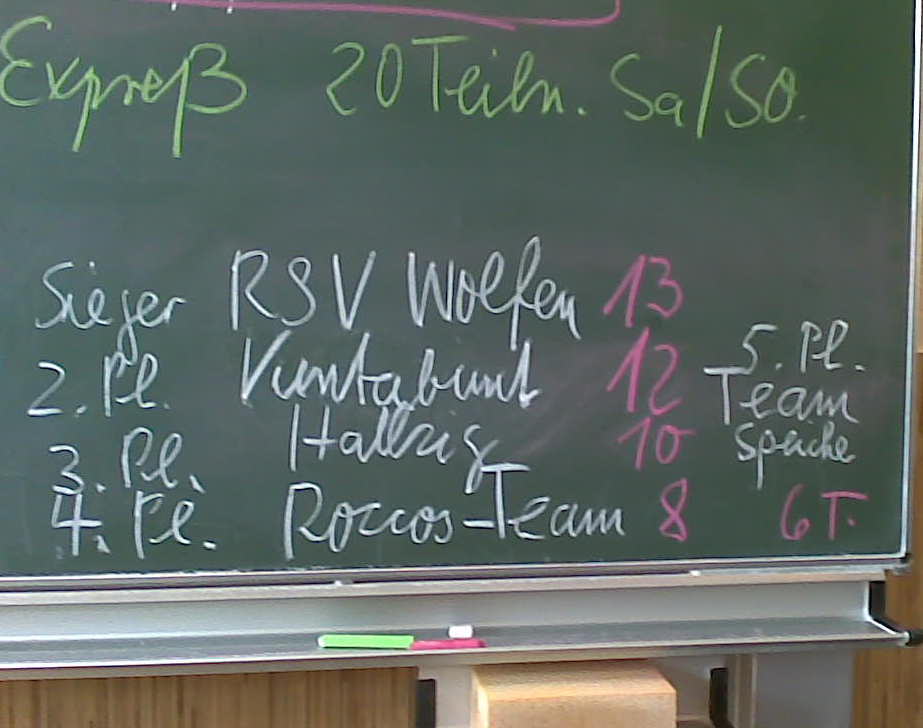 Expreß 20 Teiln. Sa/So.
Sieger RSV Wolfen 13
2. Pl. Kuntabunt 12
3. Pl. Hallzig 10
4. Pl. Roccos-Team 8
5. Pl.
Team
Speiche
6 T.